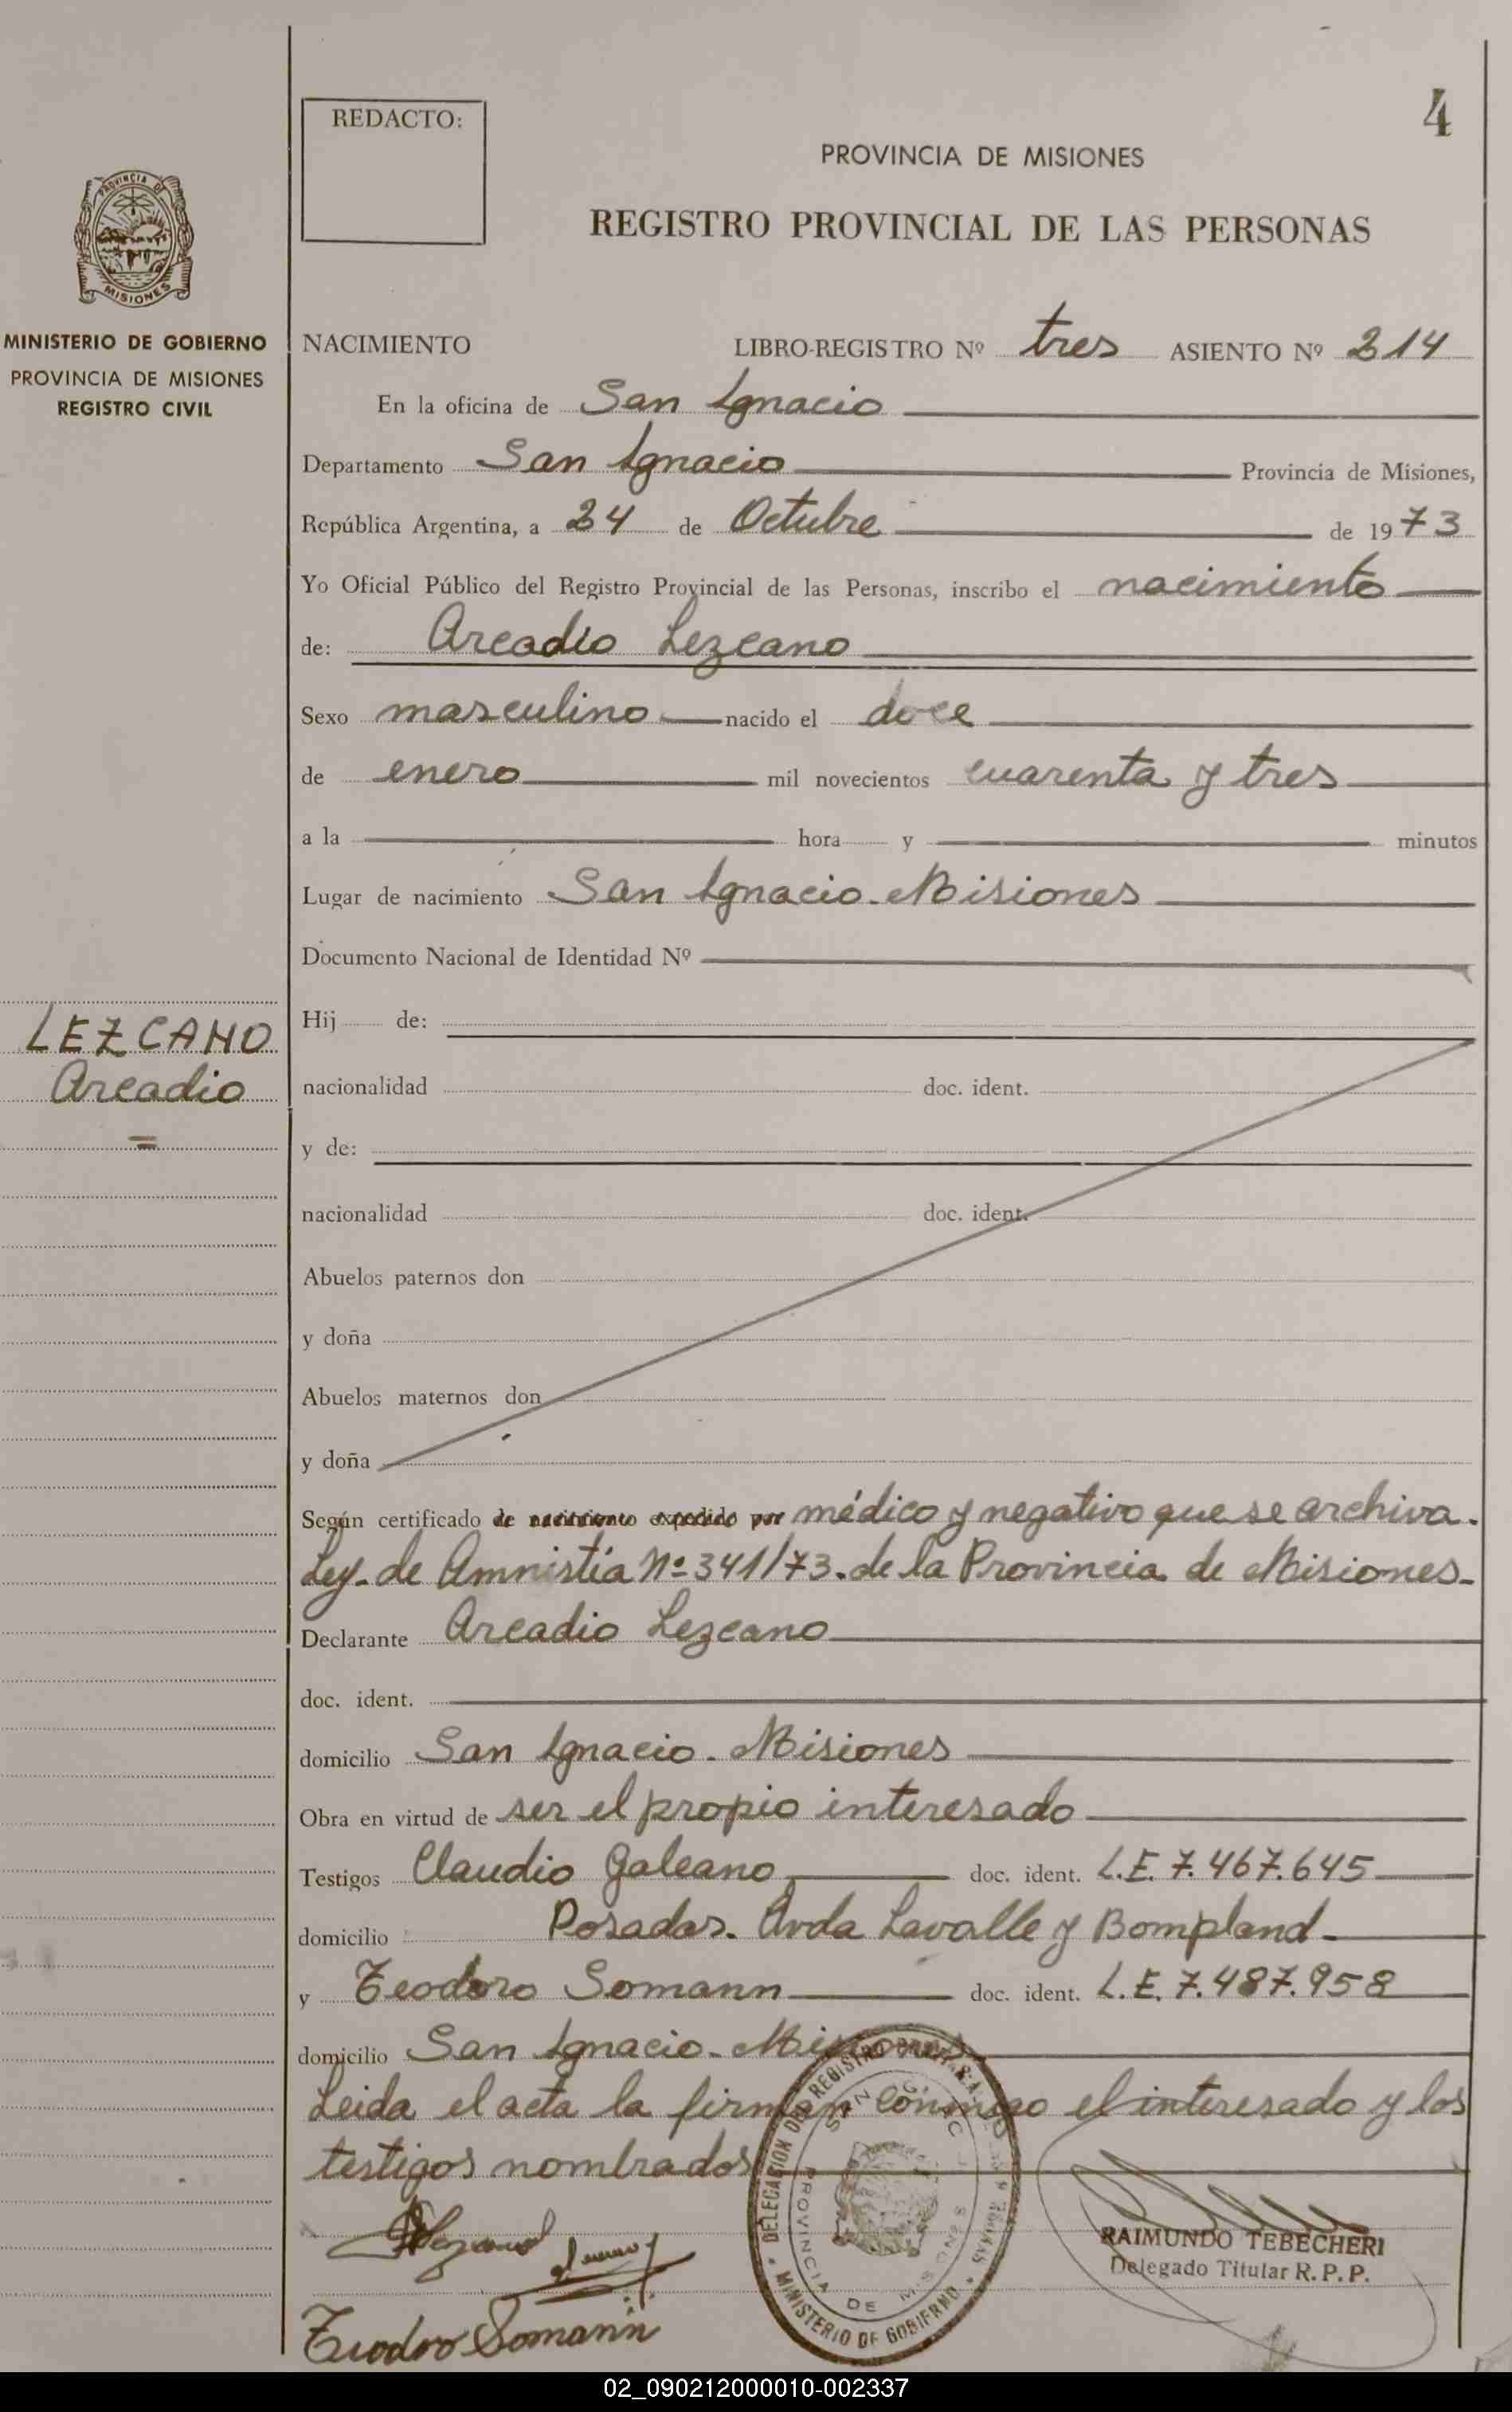 4
REDACTO:
PROVINCIA DE MISIONES
REGISTRO PROVINCIAL DE LAS PERSONAS
PROVINCIA DE
MISIONES
MINISTERIO DE GOBIERNO
PROVINCIA DE MISIONES
REGISTRO CIVIL
NACIMIENTO LIBRO-REGISTRO Nº tres ASIENTO Nº 214
En la oficina de San Ignacio
Departamento San Ignacio Provincia de Misiones,
República Argentina, a 24 de Octubre de 1973
Yo Oficial Público del Registro Provincial de las Personas, inscribo el nacimiento
de: Arcadio Lezcano
Sexo masculino nacido el doce
de enero mil novecientos cuarenta y tres
a la hora y minutos
Lugar de nacimiento San Ignacio. Misiones
Documento Nacional de Identidad Nº
LEZCANO
Arcadio
Hij de:
nacionalidad doc. ident.
y de:
nacionalidad doc. ident.
Abuelos paternos don
y doña
Abuelos maternos don
y doña
Según certificado de nacimiento expedido por médico y negativo que se archiva.
Ley. de Amnistía Nº 341/73. de la Provincia de Misiones.
Declarante Arcadio Lezcano
doc. ident.
domicilio San Ignacio. Misiones
Obra en virtud de ser el propio interesado
Testigos Claudio Galeano doc. ident. L.E. 7.467.645
domicilio Posadas. Avda Lavalle y Bompland
y Teodoro Somann doc. ident. L.E. 7.487.958
domicilio San Ignacio. Misiones
Leida el acta la firman conmigo el interesado y los
testigos nombrados
DELEGACION DEL REGISTRO
PROVINCIA DE MISIONES
MINISTERIO DE GOBIERNO
RAIMUNDO TEBECHERI
Delegado Titular R. P. P.
Teodoro Somann
02_090212000010-002337